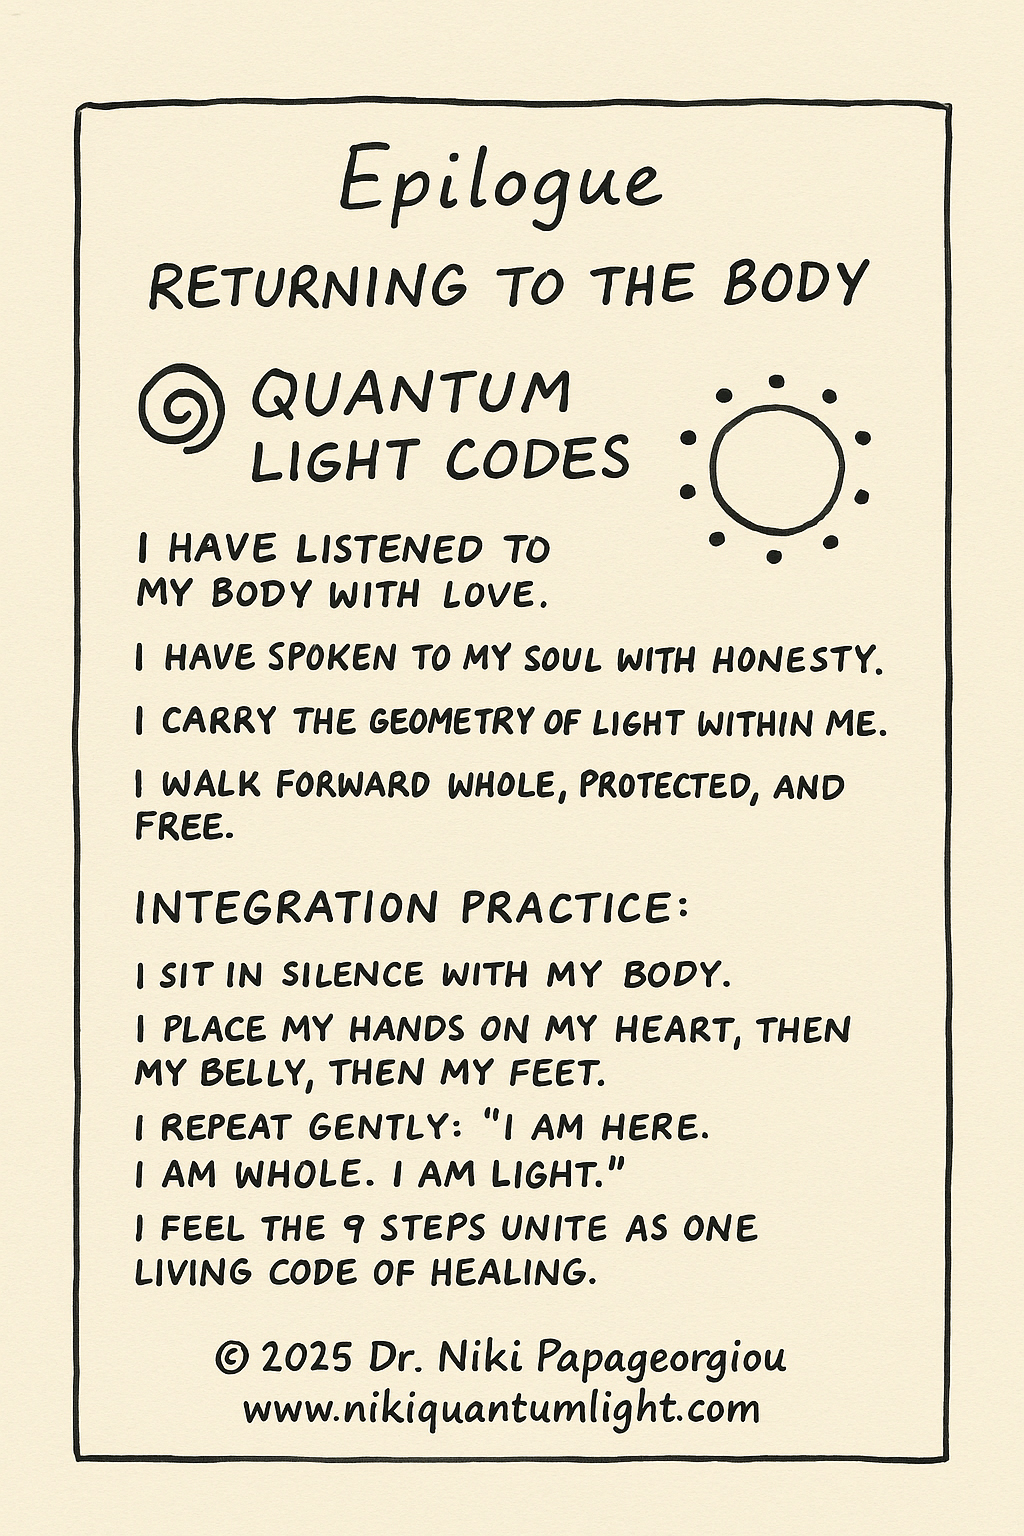 Epilogue
RETURNING TO THE BODY
QUANTUM
LIGHT CODES
I HAVE LISTENED TO
MY BODY WITH LOVE.
I HAVE SPOKEN TO MY SOUL WITH HONESTY.
I CARRY THE GEOMETRY OF LIGHT WITHIN ME.
I WALK FORWARD WHOLE, PROTECTED, AND
FREE.
INTEGRATION PRACTICE:
I SIT IN SILENCE WITH MY BODY.
I PLACE MY HANDS ON MY HEART, THEN
MY BELLY, THEN MY FEET.
I REPEAT GENTLY: "I AM HERE.
I AM WHOLE. I AM LIGHT."
I FEEL THE 9 STEPS UNITE AS ONE
LIVING CODE OF HEALING.
© 2025 Dr. Niki Papageorgiou
www.nikiquantumlight.com